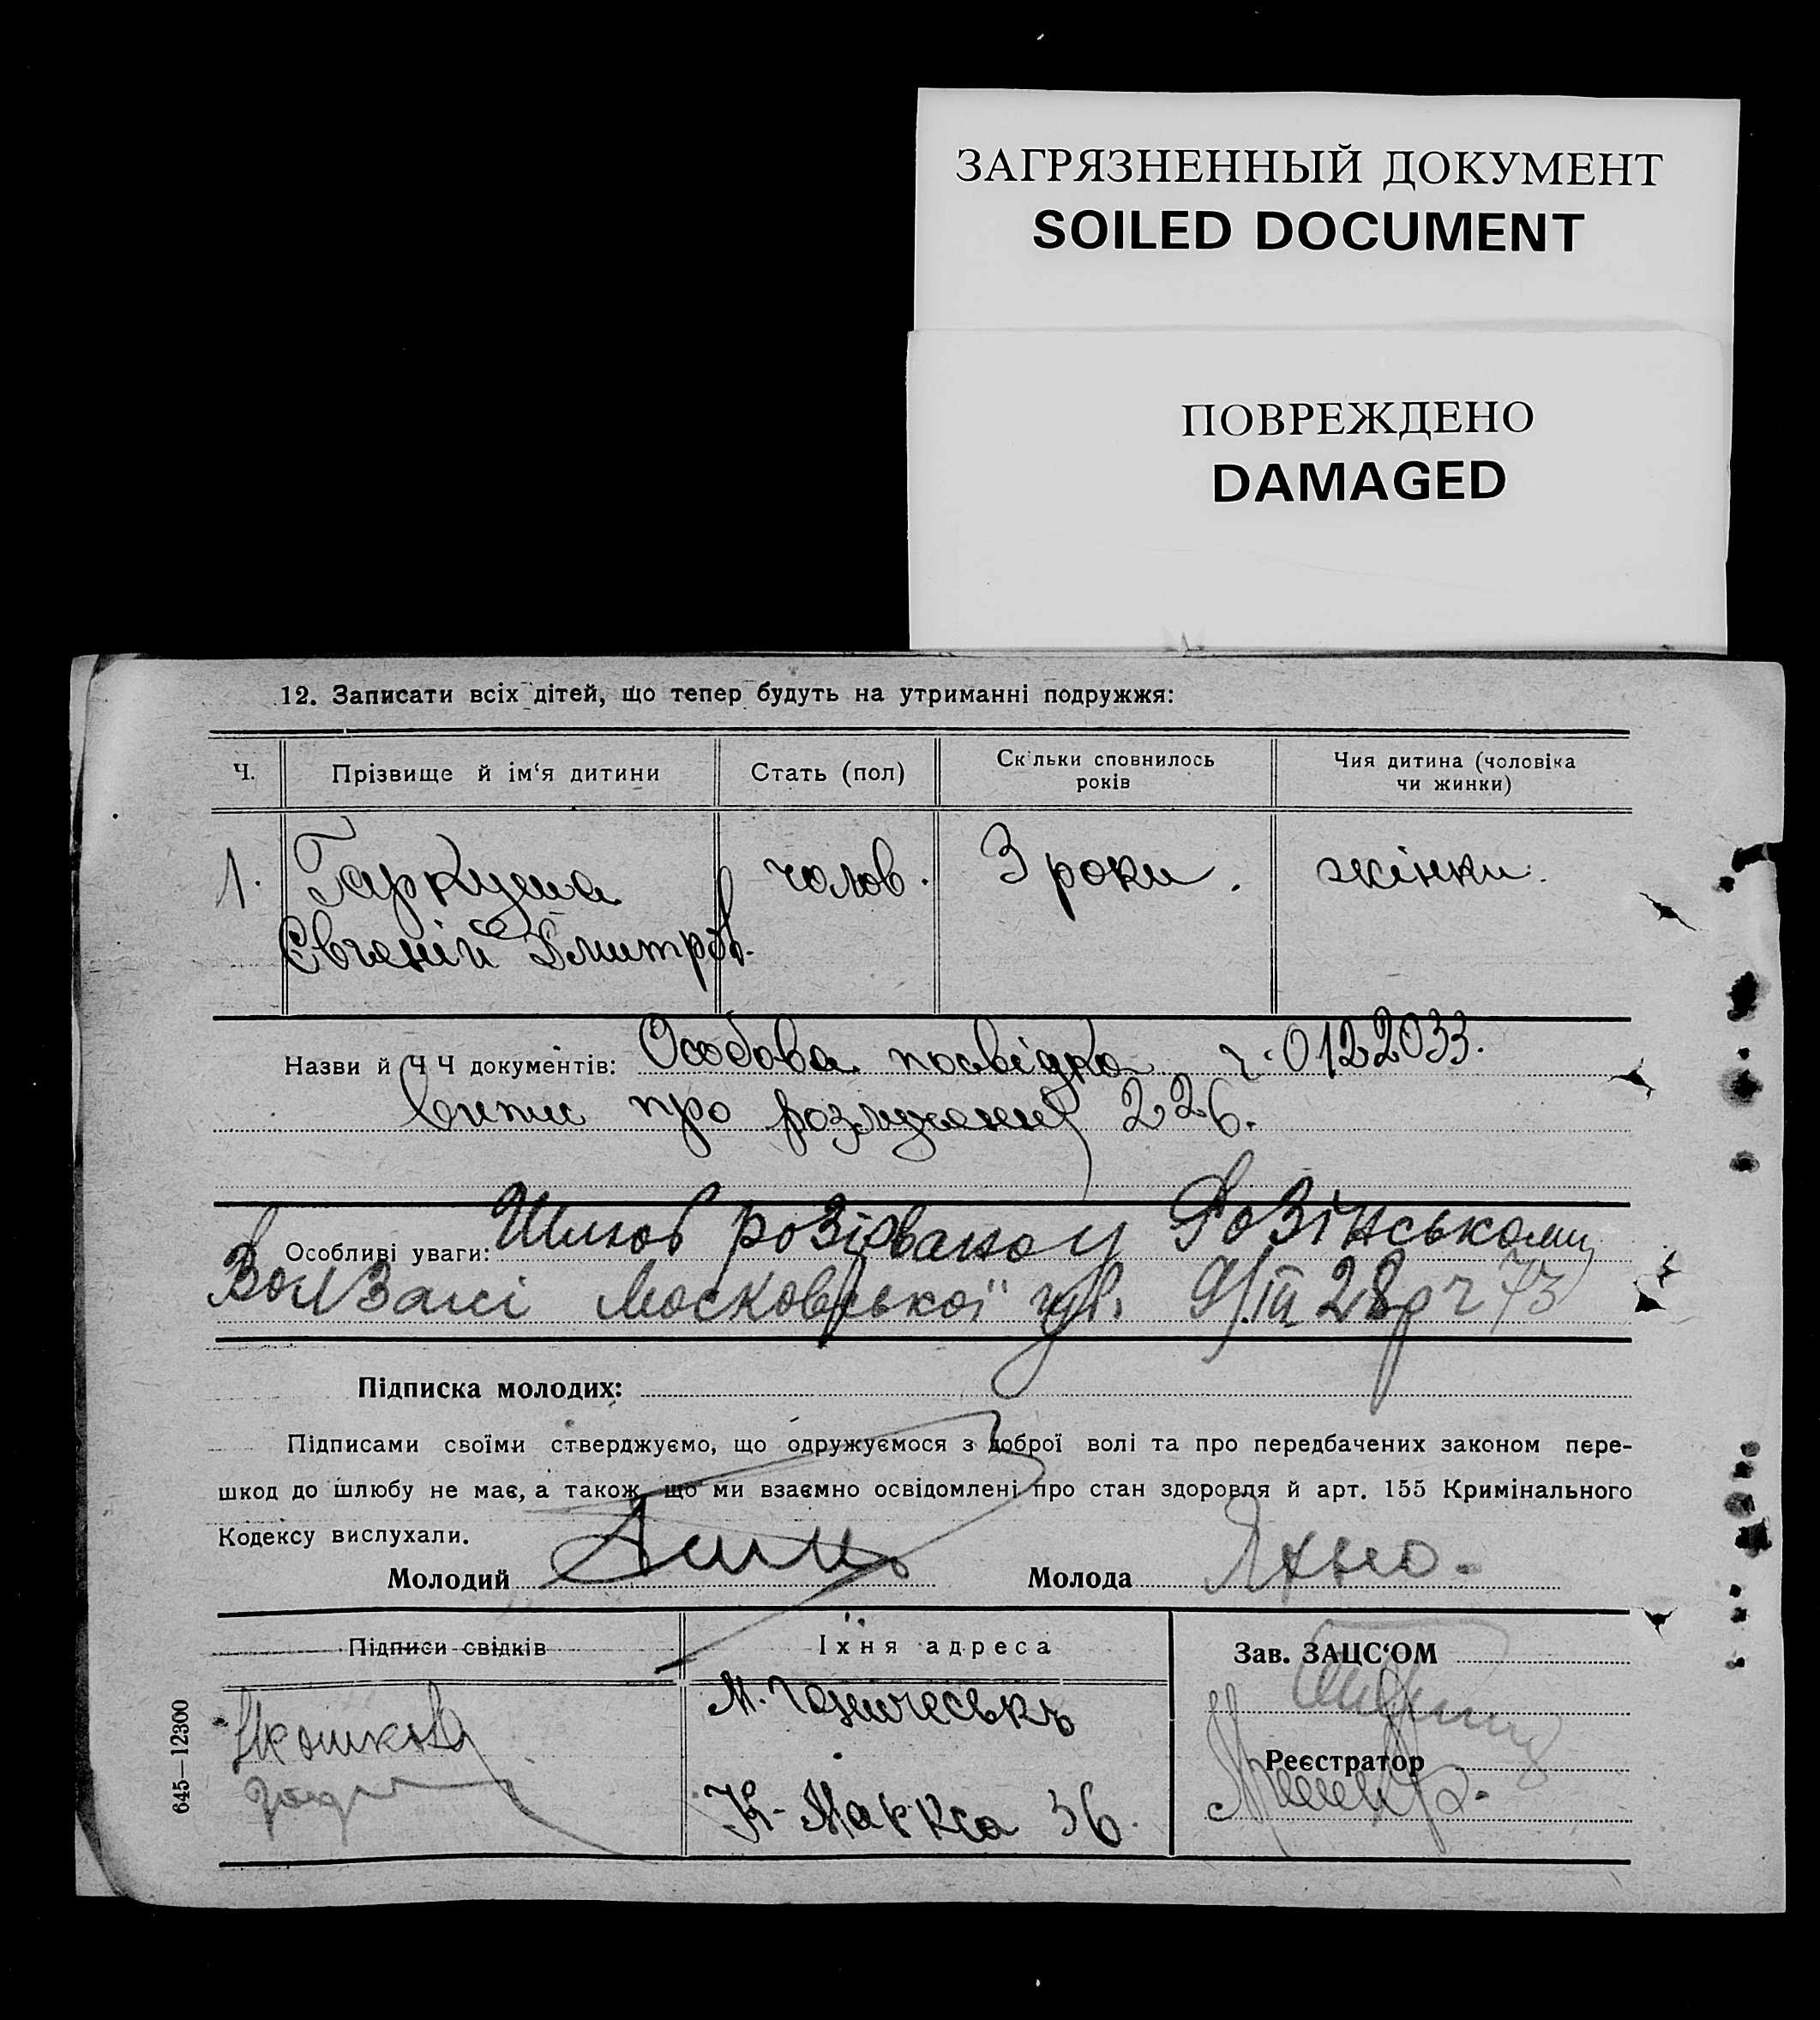 ЗАГРЯЗНЕННЫЙ ДОКУМЕНТ
SOILED DOCUMENT
ПОВРЕЖДЕНО
DAMAGED
12. Записати всіх дітей, що тепер будуть на утриманні подружжя:
Ч. Прізвище й ім‘я дитини Стать (пол) Скільки сповнилось років Чия дитина (чоловіка чи жинки)
1. Гаркуша чолов. 3 роки. жінки.
Євгеній Дмитров.
Назви й Ч Ч документів: Особова посвідка ч. 0122033.
Витис про розлучення 226.
Особливі уваги: Шлюб розірвано у
Московської губ. 9/III 28 р ч 73
Підписка молодих:
Підписами своїми стверджуємо, що одружуємося з доброї волі та про передбачених законом пере-
шкод до шлюбу не має, а також, що ми взаємно освідомлені про стан здоровля й арт. 155 Кримінального
Кодексу вислухали.
Молодий Молода
Підписи свідків Їхня адреса Зав. ЗАЦС‘ОМ
М.
Реєстратор
К-Маркса 36.
645—12300